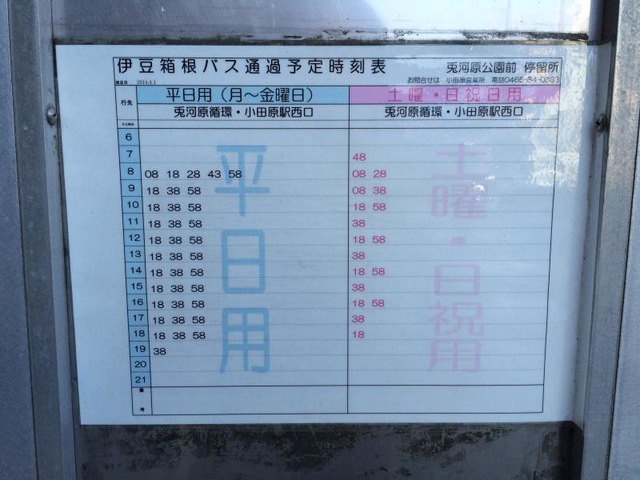 伊豆箱根バス通過予定時刻表 兎河原公園前 停留所
2016.4.1 お問合せは 小田原営業所 電話0465-34-0333
行先 平日用（月～金曜日） 土曜・日祝日用
兎河原循環・小田原駅西口 兎河原循環・小田原駅西口
6
7 48
8 08 18 28 43 58 08 28
9 18 38 58 08 38
10 18 38 58 18 58
11 18 38 58 38
12 18 38 58 18 58
13 18 38 58 38
14 18 38 58 18 58
15 18 38 58 38
16 18 38 58 18 58
17 18 38 58 38
18 18 38 58 18
19 38
20
21
平日用
土曜・日祝用